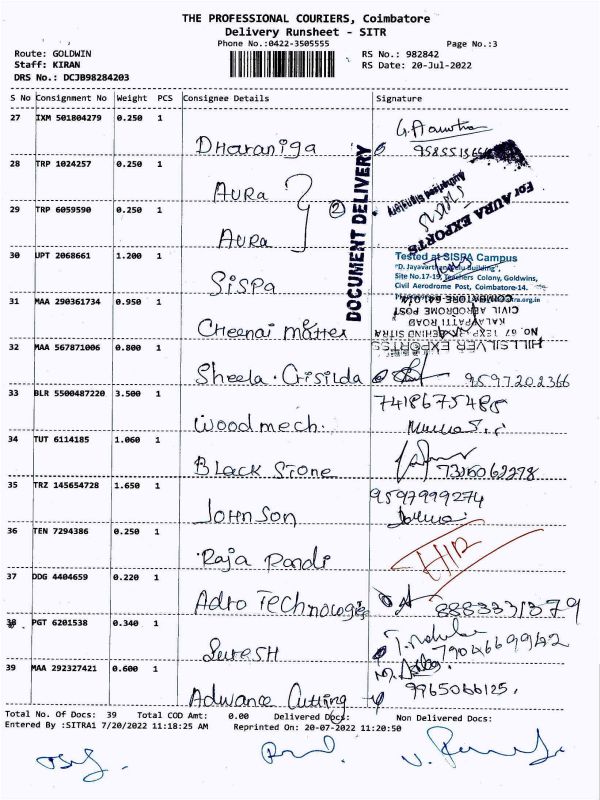 THE PROFESSIONAL COURIERS, Coimbatore
Delivery Runsheet - SITR
Phone No.:0422-3505555
Page No.:3
Route: GOLDWIN
RS No.: 982842
Staff: KIRAN
RS Date: 20-Jul-2022
DRS No.: DCJB98284203
S No Consignment No Weight PCS Consignee Details Signature
27 IXM 501804279 0.250 1
Dharaniga
28 TRP 1024257 0.250 1
Aura
29 TRP 6059590 0.250 1
2
Aura
DOCUMENT DELIVERY
Authorised Signatory
For AURA EXPORTS
30 UPT 2068661 1.200 1
Sispa
Tested at SISPA Campus
"D. Jayavarthanavelu Building",
Site No.17-19, Teachers Colony, Goldwins,
Civil Aerodrome Post, Coimbatore-14.
31 MAA 290361734 0.950 1
Cheenai Matter
CIVIL AERODROME POST
KALAPATTI ROAD
BEHIND SITRA
HILLSILVER EXPORTSS
32 MAA 567871006 0.800 1
Sheela. Crisilda 9597202366
33 BLR 5500487220 3.500 1
7418675485
Woodmech.
34 TUT 6114185 1.060 1
Black Stone
35 TRZ 145654728 1.650 1
9597999274
Johnson
36 TEN 7294386 0.250 1
Raja Pandi
37 DDG 4404659 0.220 1
Adro Technologies 8883331379
38 PGT 6201538 0.340 1
7904669942
Suresh
39 MAA 292327421 0.600 1
9965066125.
Adwance Cutting
Total No. Of Docs: 39 Total COD Amt: 0.00 Delivered Docs: Non Delivered Docs:
Entered By :SITRA1 7/20/2022 11:18:25 AM Reprinted On: 20-07-2022 11:20:50